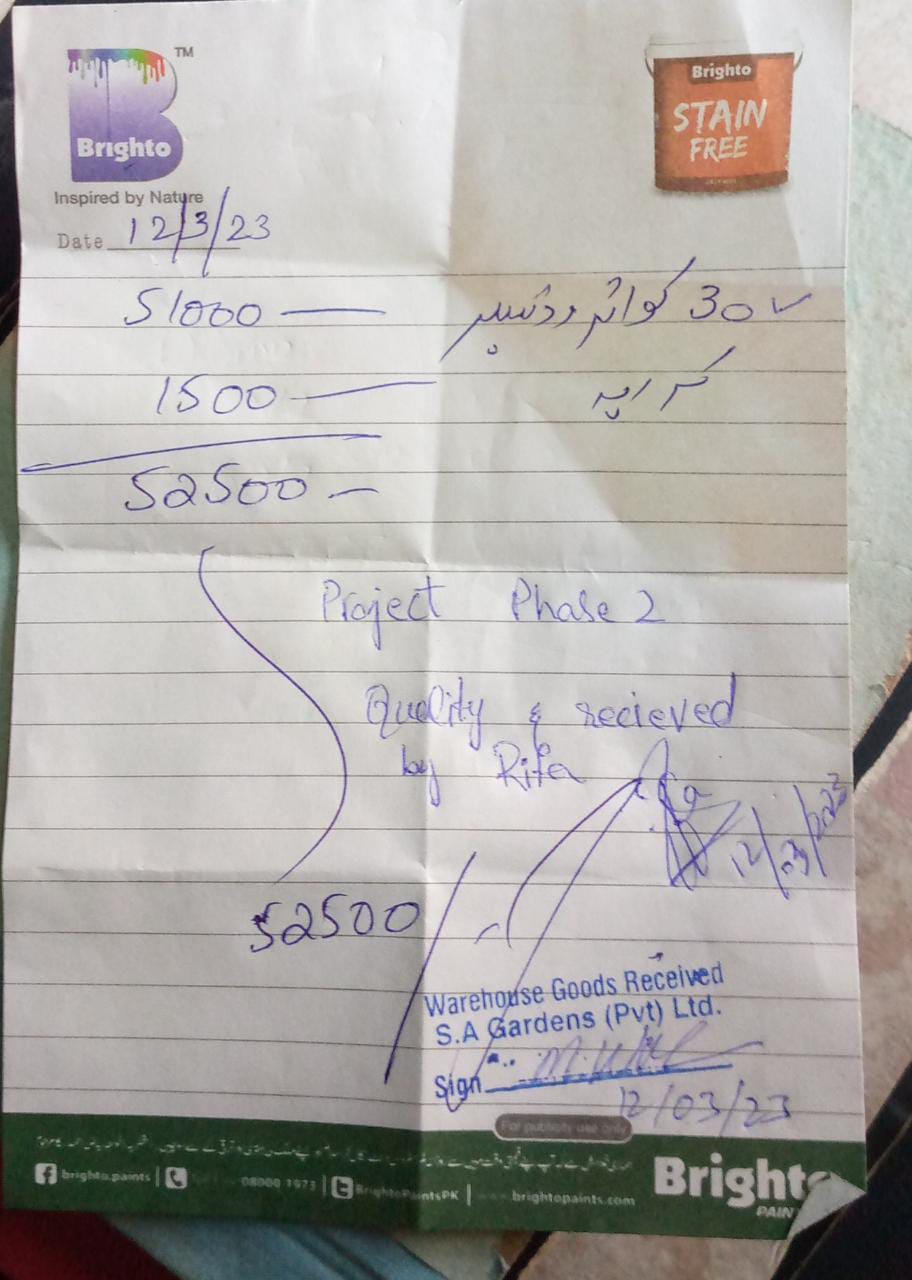 TM
B
Brighto
Inspired by Nature
Brighto
STAIN
FREE
Date 12/3/23
51000 — 30
1500 — کرایہ
52500 —
Project Phase 2
Quality & recieved
by Rifa
12/03/2023
52500/-
Warehouse Goods Received
S.A Gardens (Pvt) Ltd.
Sign
12/03/23
For publicity use only
brighto.paints | 08000 1973 | BrightoPaintsPK | www.brightopaints.com
Brighto
PAIN